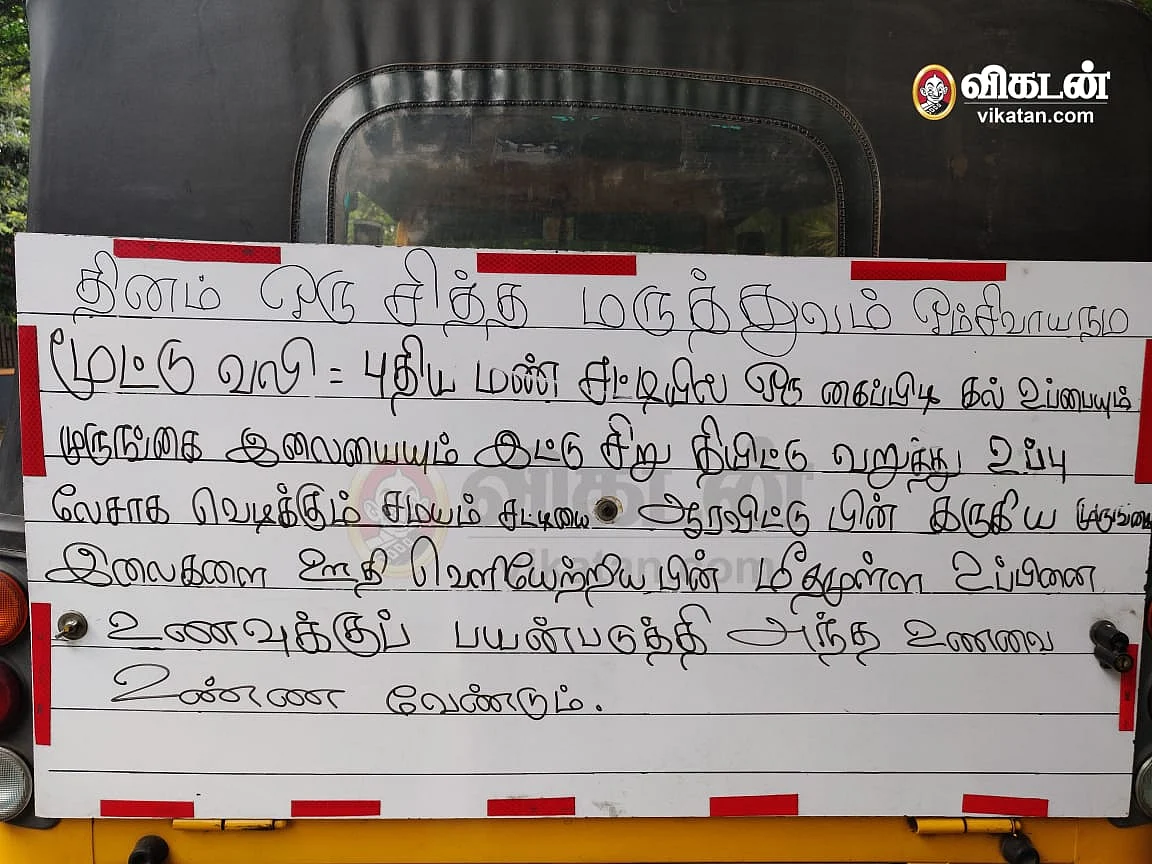 விகடன்
vikatan.com
தினம் ஒரு சித்த மருத்துவம் ஓம்சிவாயநம
மூட்டு வலி = புதிய மண் சட்டியில் ஒரு கைப்பிடி கல் உப்பையும்
முருங்கை இலையையும் இட்டு சிறு தீயிட்டு வறுத்து உப்பு
லேசாக வெடிக்கும் சமயம் சட்டியை ஆரவிட்டு பின் கருகிய முருங்கை
இலைகளை ஊதி வெளியேற்றிய பின் மீதமுள்ள உப்பினை
உணவுக்குப் பயன்படுத்தி அந்த உணவை
உண்ண வேண்டும்.
விகடன்
vikatan.com